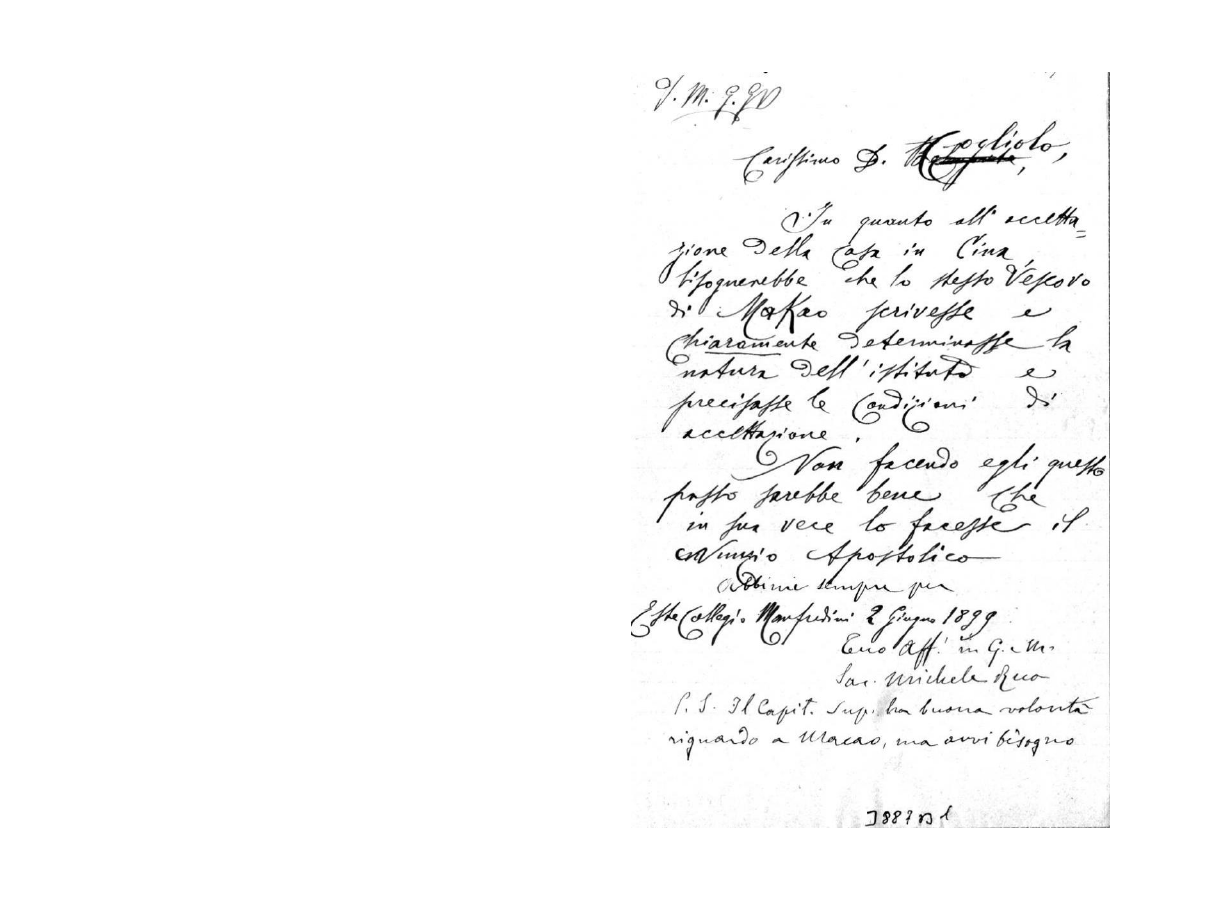 V. M. G. GV
Carissimo D. Cogliolo,
In quanto all' accetta=
zione della casa in Cina,
bisognerebbe che lo stesso Vescovo
di MaKao scrivesse e
chiaramente determinasse la
natura dell' istituto e
precisasse le condizioni di
accettazione.
Non facendo egli questo
passo sarebbe bene che
in sua vece lo facesse il
Nunzio Apostolico
Abbimi sempre per
Este Collegio Manfredini 2 Giugno 1899
Tuo Aff. in G. e M.
Sac. Michele Rua
P. S. Il Capit. Sup. ha buona volontà
riguardo a Macao, ma avvi bisogno